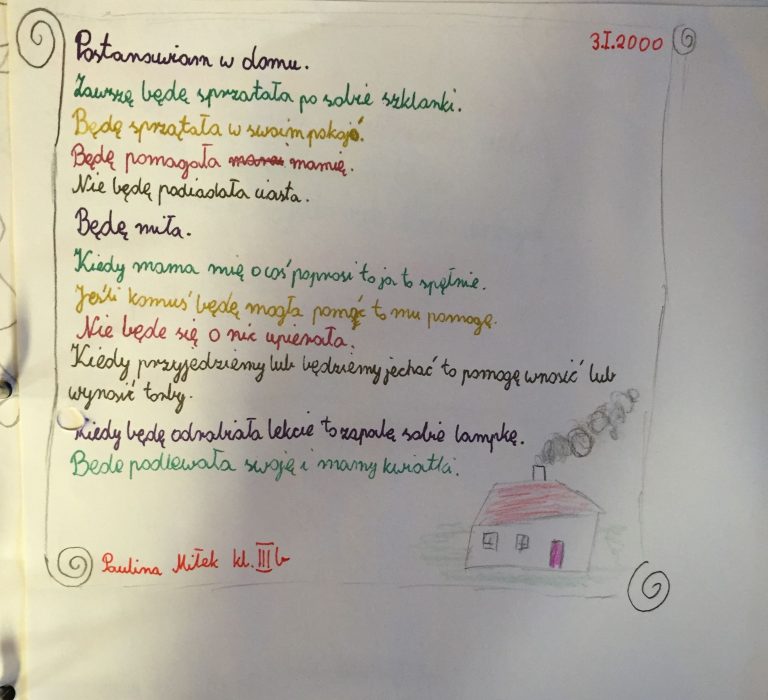 3I.2000
Postanowiam w domu.
Zawszę będę sprzatała po sobie szklanki.
Będę sprzątała w swoim pokojó.
Będę pomagała mamię.
Nie będę podiadała ciasta.
Będę miła.
Kiedy mama mię o coś poprosi to ja to spęłnie.
Jeśli komuś będę mogła pomóc to mu pomogę.
Nie będe się o nic upierała.
Kiedy przyjedziemy lub będziemy jechać to pomogę wnosić lub
wynosić torby.
Kiedy będę odrabiała lekcie to zapalę sobie lampkę.
Bede podlewała swoję i mamy kwiatki.
Paulina Miłek kl. III b